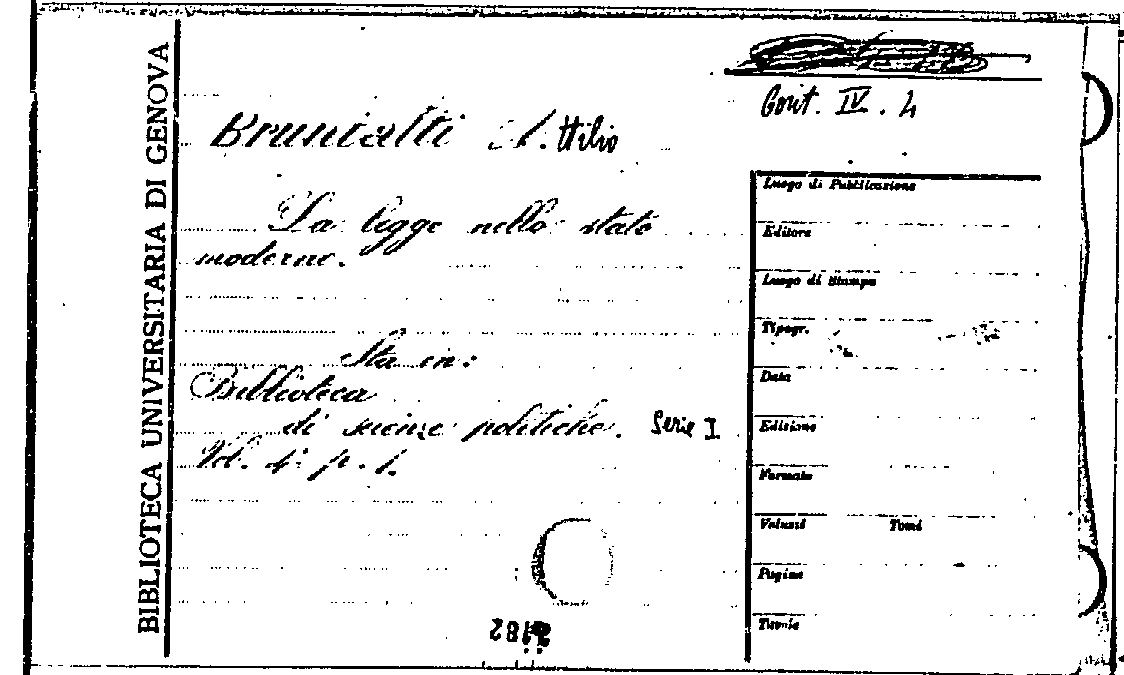 BIBLIOTECA UNIVERSITARIA DI GENOVA
Gort. IV. 4
Brunialti Attilio
La legge nello stato
moderno.
Sta in:
Biblioteca
di scienze politiche. Serie I
Vol. 4° p. 1.
Luogo di Pubblicazione
Editore
Luogo di Stampa
Tipogr.
Data
Edizione
Formato
Volumi Tomi
Pagine
Tavole